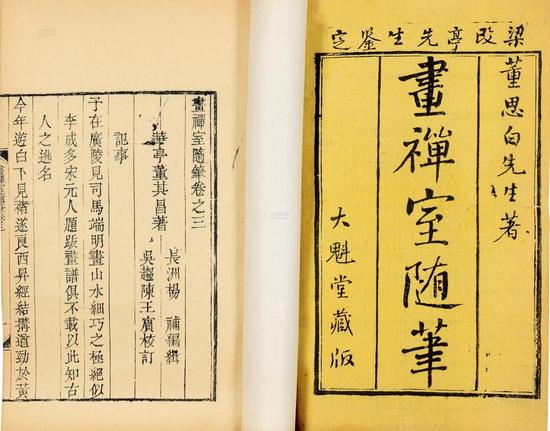 梁改亭先生鑒定
董思白先生著
畫禪室隨筆
大魁堂藏版
畫禪室隨筆卷之三
華亭董其昌著
長洲楊 補編輯
吳趨陳王賓校訂
記事
予在廣陵見司馬端明畫山水細巧之極絕似
李成多宋元人題跋畫譜俱不載以此知古
人之逃名
今年遊白下見褚遂良西昇經結搆遒勁於黃